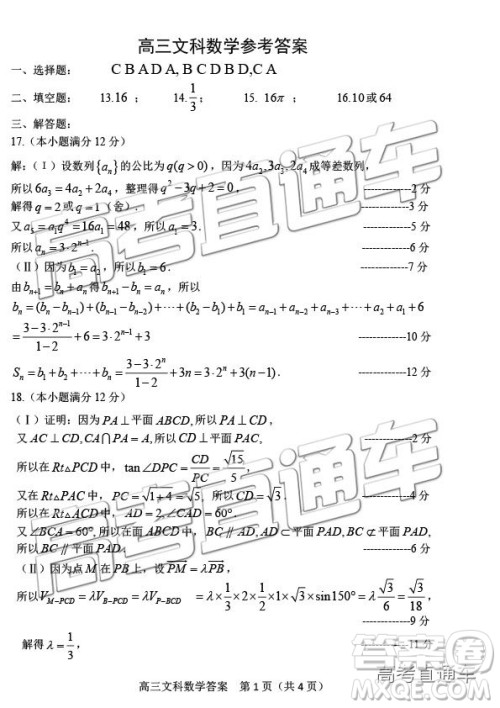 高三文科数学参考答案
一、选择题： C B A D A, B C D B D, C A
二、填空题： 13.16 ； 14. 1/3 ； 15. 16π ； 16.10或64
三、解答题：
17.（本小题满分 12 分）
解:（Ⅰ）设数列{aₙ}的公比为q(q>0)，因为4a₂,3a₃,2a₄成等差数列,
所以6a₃=4a₂+2a₄，整理得q²-3q+2=0， ------------2 分
解得q=2或q=1(舍). ------------3 分
又a₅=a₁q⁴=16a₁=48，所以a₁=3. ------------5 分
所以aₙ=3·2ⁿ⁻¹. ------------6 分
（Ⅱ）因为b₁=a₂，所以b₁=6. ------------7 分
由bₙ₊₁=bₙ+aₙ得bₙ₊₁-bₙ=aₙ，所以
bₙ=(bₙ-bₙ₋₁)+(bₙ₋₁-bₙ₋₂)+⋯+(b₂-b₁)+b₁=aₙ₋₁+aₙ₋₂+⋯+a₂+a₁+6
=(3-3·2ⁿ⁻¹)/(1-2)+6=3·2ⁿ⁻¹+3 ------------10 分
Sₙ=b₁+b₂+⋯+bₙ=(3-3·2ⁿ)/(1-2)+3n=3·2ⁿ+3(n-1). ------------12 分
18.（本小题满分 12 分）
（Ⅰ）证明：因为PA⊥平面ABCD,所以PA⊥CD，
又AC⊥CD,CA∩PA=A，所以CD⊥平面PAC, ------------2 分
所以在Rt△PCD中，tan∠DPC=CD/PC=√15/5,
又在Rt△PAC中，PC=√(1+4)=√5，所以CD=√3. ------------4 分
所以在Rt△ACD中，AD=2,∠CAD=60°.
又∠BCA=60°,所以在面ABCD中，BC∥AD,AD⊂平面PAD,BC⊄平面PAD,
所以BC∥平面PAD. ------------6 分
（Ⅱ）因为点M在PB上，设PM=λPB，
所以V_M-PCD=λV_B-PCD=λV_P-BCD =λ×1/3×2×1/2×1×√3×sin150°=λ√3/6=√3/18,
------------9 分
解得λ=1/3, ------------11 分
高三文科数学答案 第 1 页（共 4 页）
高考直通车
高考直通车
高考直通车
答案圈
MXQE.COM